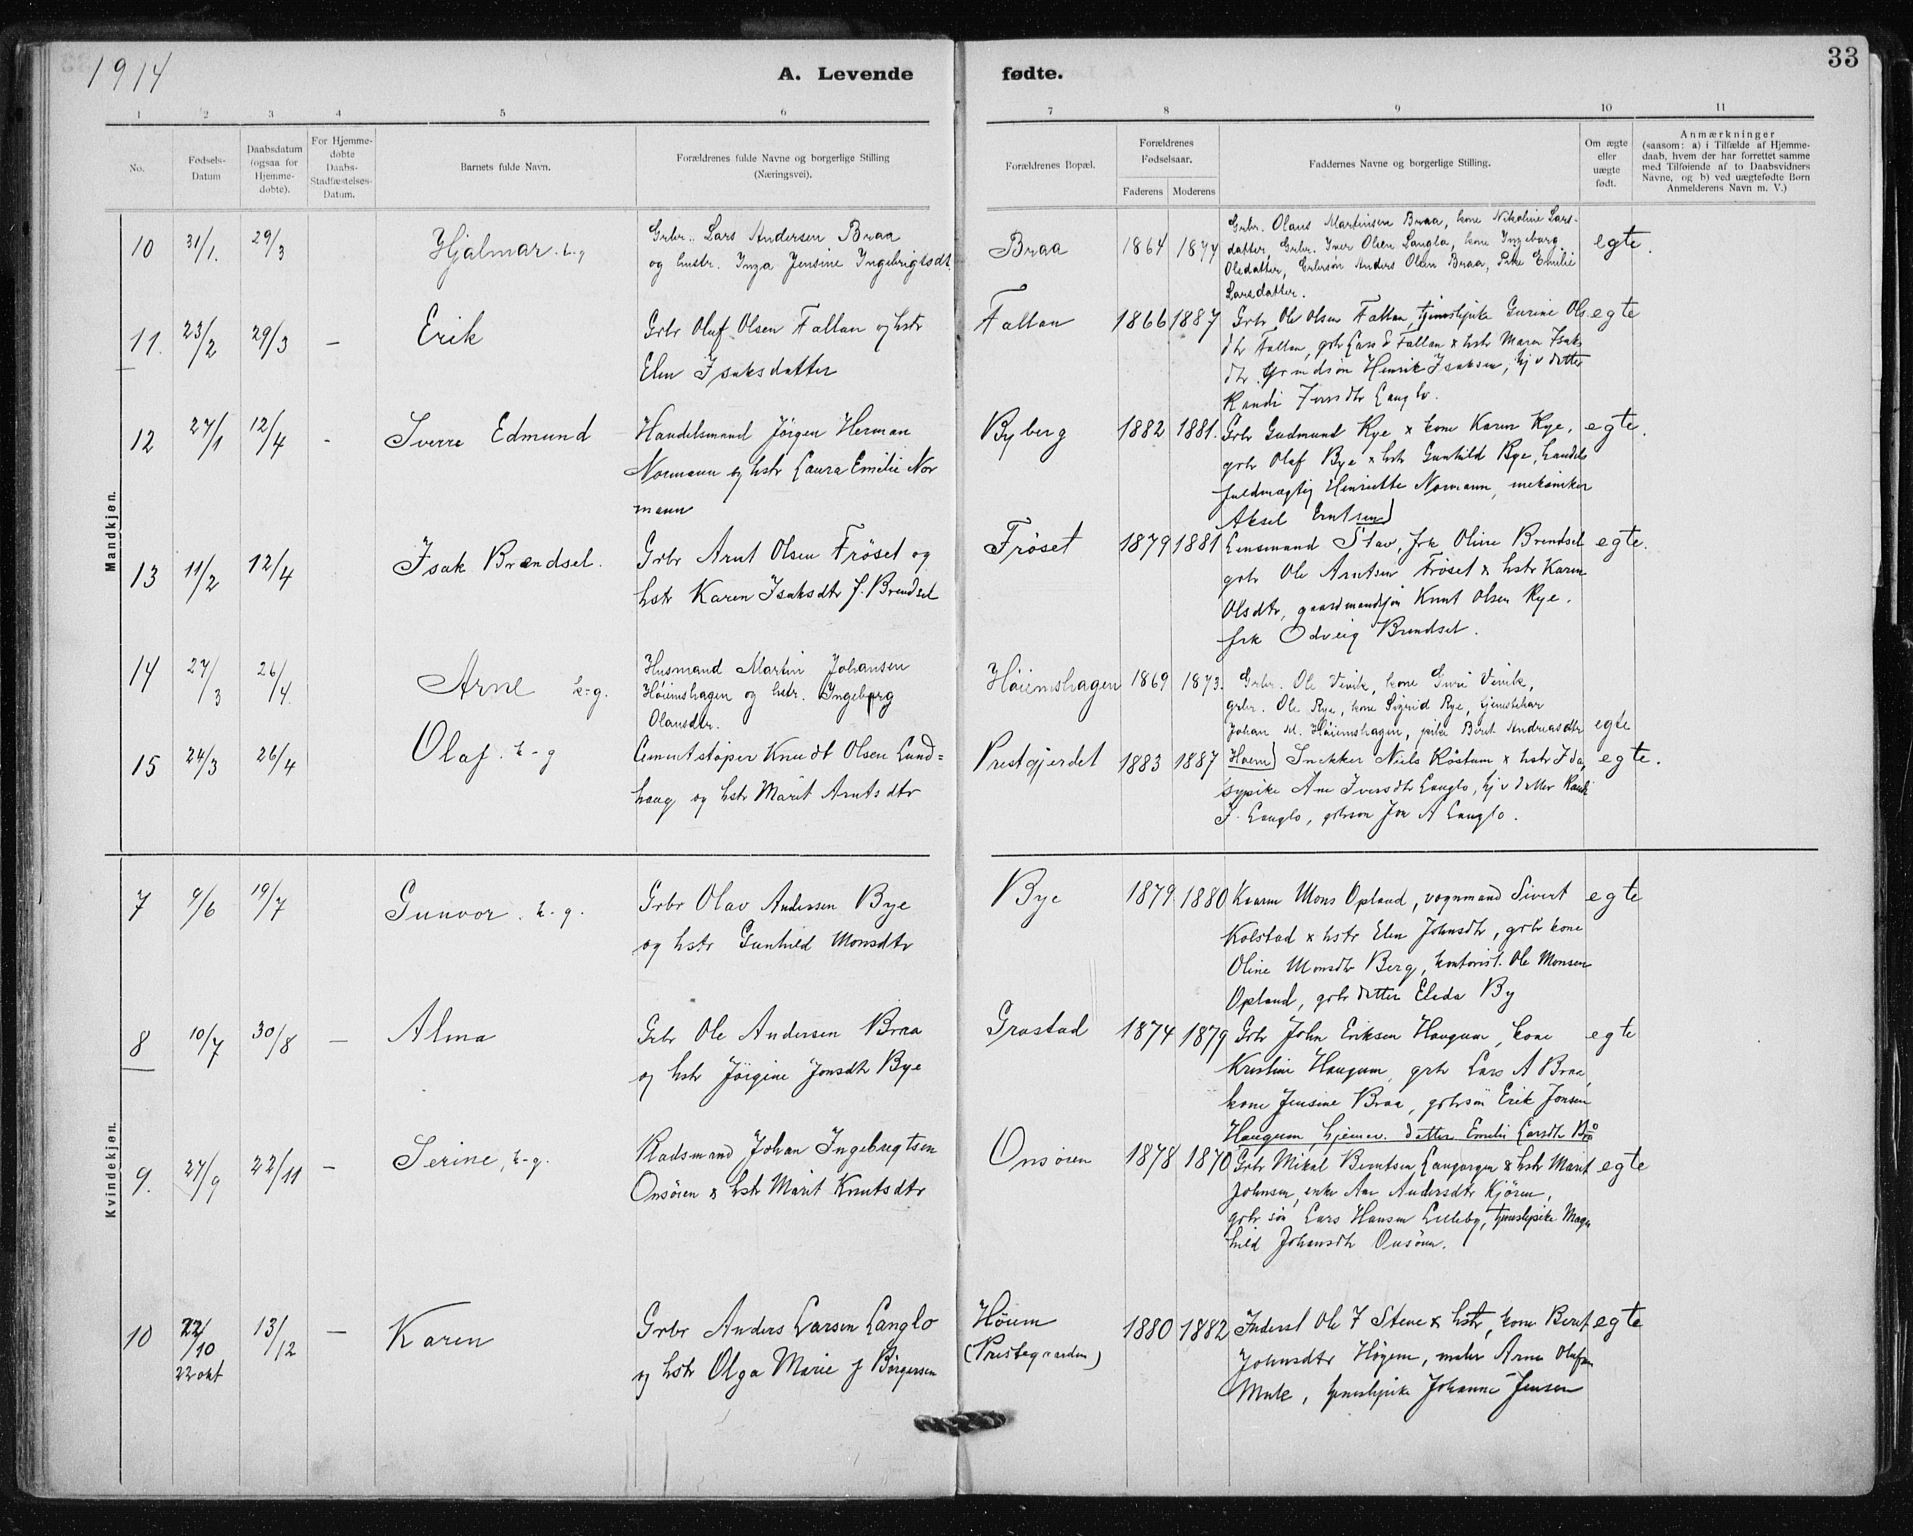 1914
A. Levende fødte.
33
1 2 3 4 5 6 7 8 9 10 11
No.
Fødsels-
Datum
Daabsdatum
(ogsaa for
Hjemme-
døbte).
For Hjemme-
døbte
Daabs-
Stadfæstelses-
Datum.
Barnets fulde Navn.
Forældrenes fulde Navne og borgerlige Stilling
(Næringsvei).
Forældrenes Bopæl.
Forældrenes
Fødselsaar.
Faderens Moderens
Faddernes Navne og borgerlige Stilling.
Om ægte
eller
uægte
født.
Anmærkninger
(saasom: a) i Tilfælde af Hjemme-
daab, hvem der har forrettet samme
med Tilføiende af to Daabsvidners
Navne, og b) ved uægtefødte Børn
Anmelderens Navn m. V.)
Mandkjøn.
10 31/1. 29/3 Hjalmar h-g
Grbr. Lars Andersen Braa
og hustr. Inga Jensine Ingebrigtsdt.
Braa 1864 1877
Grbr. Olaus Martinsen Braa, kone Nikoline Lars-
datter, Grbr. Iver Olsen Langlo, kone Ingeborg
Olsdatter, Grbrsøn Anders Olsen Braa, Pike Emilie
Larsdatter.
egte.
11. 23/2 29/3 — Erik
Grbr Oluf Olsen Fallan og hstr
Elen Isaksdatter
Fallan 1866 1887
Grbr Ole Olsen Fallan, tjenestepike Gurine Ols
dtr Fallan, grbr Lars E Fallan x hstr Maren Isaks
dtr. Grbrsøn Henrik Isaksen, hj v datter
Randi Iversdtr Langlo.
egte
12 27/1 12/4 - Sverre Edmund
Handelsmand Jörgen Herman
Normann og hstr Laura Emilie Nor
mann
Byberg 1882 1881.
Grbr Gudmund Rye x kone Karen Rye,
grbr Olaf Bye x hstr Gunhild Bye, handels
fuldmægtig Henriette Normann, mekaniker
Aksel Erntsen)
egte.
13 11/2 12/4 Isak Brendsel.
Grbr Arnt Olsen Fröset og
hstr Karen Isaksdtr f. Brendsel
Fröset 1879 1881
Lensmand Stav, frk Oline Brendsel
grbr Ole Arntsen Fröset x hstr Karen
Olsdtr, gaardmandsøn Knut Olsen Rye.
frk Odveig Brendsel.
egte.
14 27/3 26/4. Arne h-g.
Husmand Martin Johansen
Höiemshagen og hstr. Ingeborg
Olausdtr.
Höiemshagen 1869 1873.
Grbr. Ole Venik, kone Guri Venik,
grbr. Ole Rye, kone Sigrid Rye, tjenestekar
Johan M. Höiemshagen, pike Berit Andreasdtr
Hoem)
egte
15 24/3 26/4 Olaf. h-g
Cementstöper Knudt Olsen Lund=
haug og hstr Marit Arntsdtr
Prestgjerdet 1883 1887
Snekker Niels Röstum x hstr Ida,
sypike Ane Iversdtr Langlo, hj v datter Randi
I. Langlo, grbrsøn Jon A Langlo.
egte.
Kvindekjøn.
7 9/6 19/7 Gunvor. h-g.
Grbr Olav Andersen Bye
og hstr Gunhild Monsdtr
Bye 1879 1880
Kaarm Mons Opland, vognmand Sivert
Kolstad x hstr Elen Johnsdtr, grbr kone
Oline Monsdtr Berg, kontorist. Ole Monsen
Opland, grbr datter Elida By
egte
8 10/7 30/8 — Alma
Grbr Ole Andersen Braa
og hstr Jörgine Jonsdtr Bye
Grostad 1874 1879
Grbr John Eriksen Haugum, kone
Kristine Haugum, grbr Lars A Braa,
kone Jensine Braa, grbrsøn Erik Jonsen
Haugum, hjemmev. datter Emilie Larsdtr Brå
egte
9. 27/9 22/11 — Serine, h-g.
Radsmand Johan Ingebrigtsen
Onsören x hstr Marit Knutsdtr
Onsören 1878 1870
Grbr Mikal Berntsen Langørgen x hstr Marit
Johnsen, enke Ane Andersdtr Kjören,
grbr søn Lars Hansen Lilleby, tjenestepike Magn
hild Johansdtr Onsören.
egte
10 22/10 22 okt 13/12 — Karen
Grbr Anders Larsen Langlo
og hstr Olga Marie f Börgersen
Höium
(Prestegaarden)
1880 1882
Inderst Ole J Stene x hstr, kone Berit
Johnsdtr Högem, maler Arne Olufsen
Mule, tjenestepike Johanne Jensen
egte